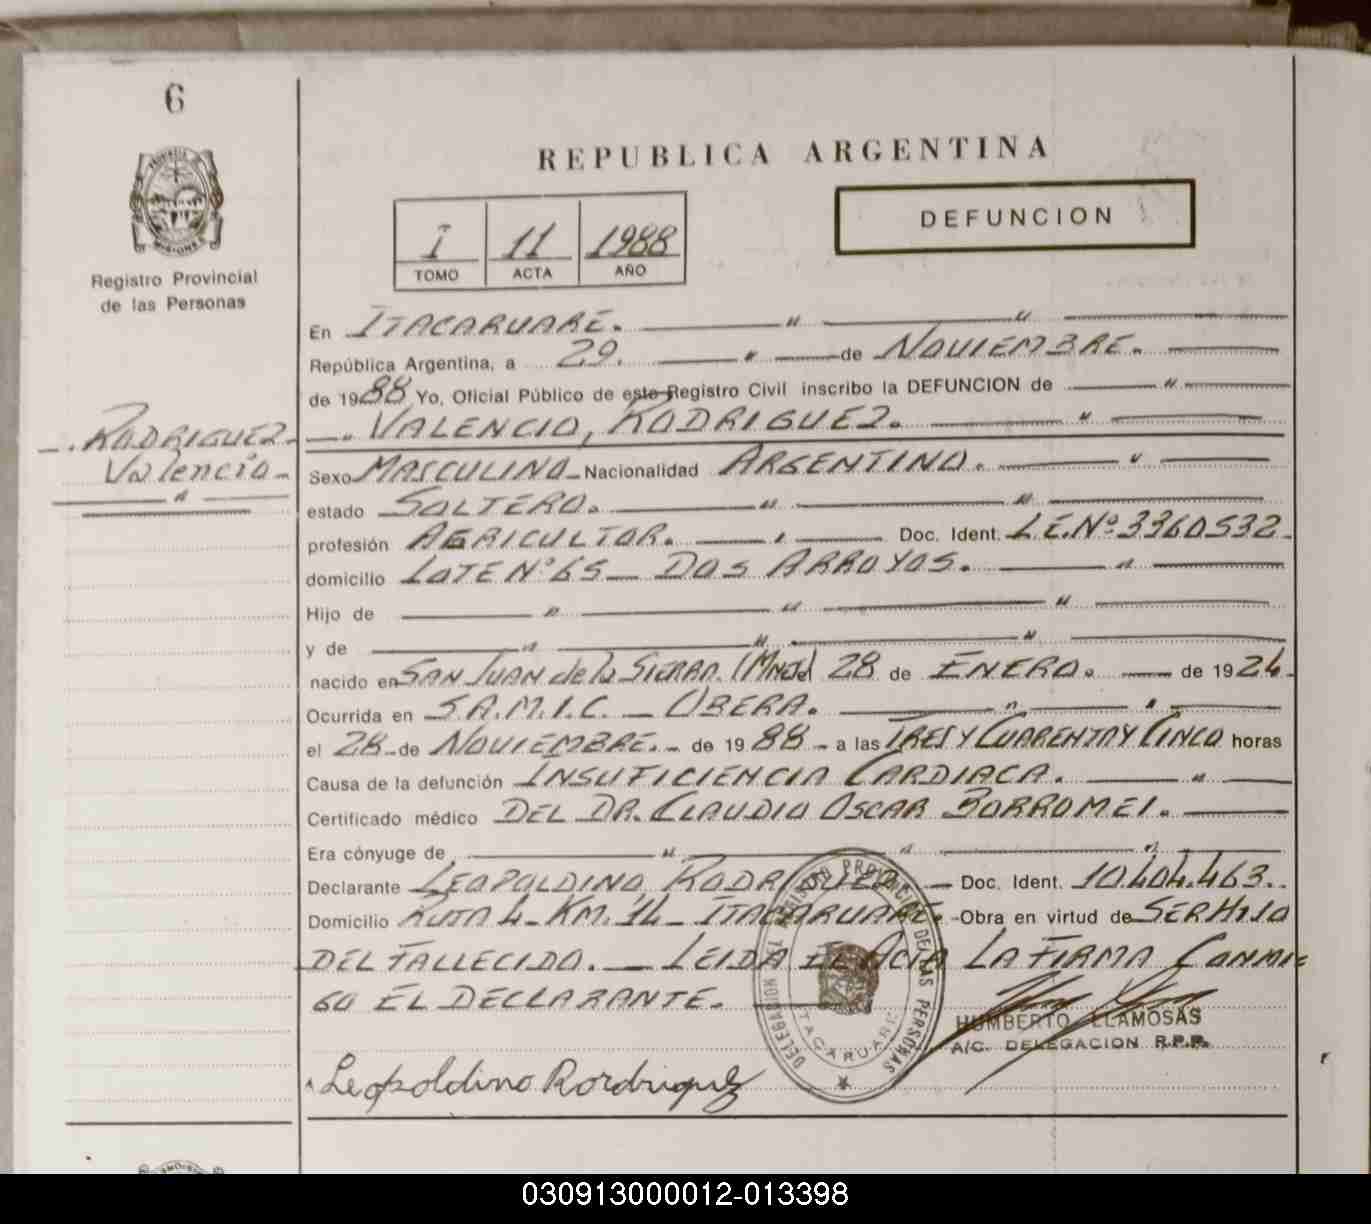 6
REPUBLICA ARGENTINA
I 11 1988
TOMO ACTA AÑO
DEFUNCION
Registro Provincial
de las Personas
En ITACARUARE.
República Argentina, a 29. de NOVIEMBRE.
de 1988 Yo, Oficial Público de este Registro Civil inscribo la DEFUNCION de
RODRIGUEZ
Valencio
VALENCIO, RODRIGUEZ.
Sexo MASCULINO Nacionalidad ARGENTINO.
estado SOLTERO.
profesión AGRICULTOR. Doc. Ident. L.E.Nº 3360532
domicilio LOTE Nº 65 DOS ARROYOS.
Hijo de
y de
nacido en SAN JUAN de la SIERRA (Mnes) 28 de ENERO. de 1924
Ocurrida en S.A.M.I.C. OBERA.
el 28 de NOVIEMBRE. de 1988 a las TRES Y CUARENTA Y CINCO horas
Causa de la defunción INSUFICIENCIA CARDIACA.
Certificado médico DEL DR. CLAUDIO OSCAR BORROMEI.
Era cónyuge de
Declarante LEOPOLDINO RODRIGUEZ Doc. Ident. 10.404.463.
Domicilio RUTA 4 KM. 14 ITACARUARE. Obra en virtud de SER HIJO
DEL FALLECIDO. LEIDA EL ACTA LA FIRMA CONMI=
GO EL DECLARANTE.
HUMBERTO LLAMOSAS
A/C. DELEGACION R.P.P.
DELEGACION EL REGISTRO PROVINCIAL DE LAS PERSONAS
ITACARUARE
Leopoldino Rordriguez
030913000012-013398